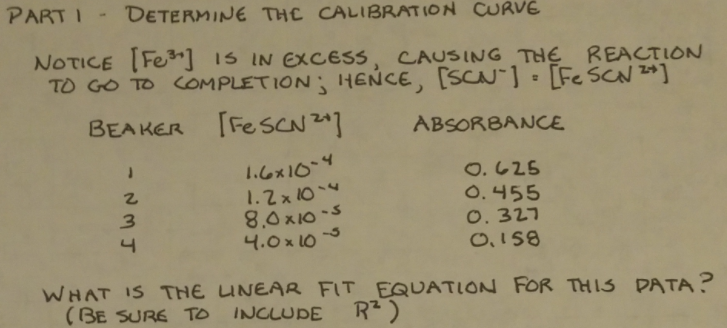 PART 1 - DETERMINE THE CALIBRATION CURVE
NOTICE [Fe³⁺] IS IN EXCESS, CAUSING THE REACTION
TO GO TO COMPLETION; HENCE, [SCN⁻] = [FeSCN²⁺]
BEAKER [FeSCN²⁺] ABSORBANCE
1 1.6x10⁻⁴ 0.625
2 1.2x10⁻⁴ 0.455
3 8.0x10⁻⁵ 0.327
4 4.0x10⁻⁵ 0.158
WHAT IS THE LINEAR FIT EQUATION FOR THIS DATA?
(BE SURE TO INCLUDE R²)